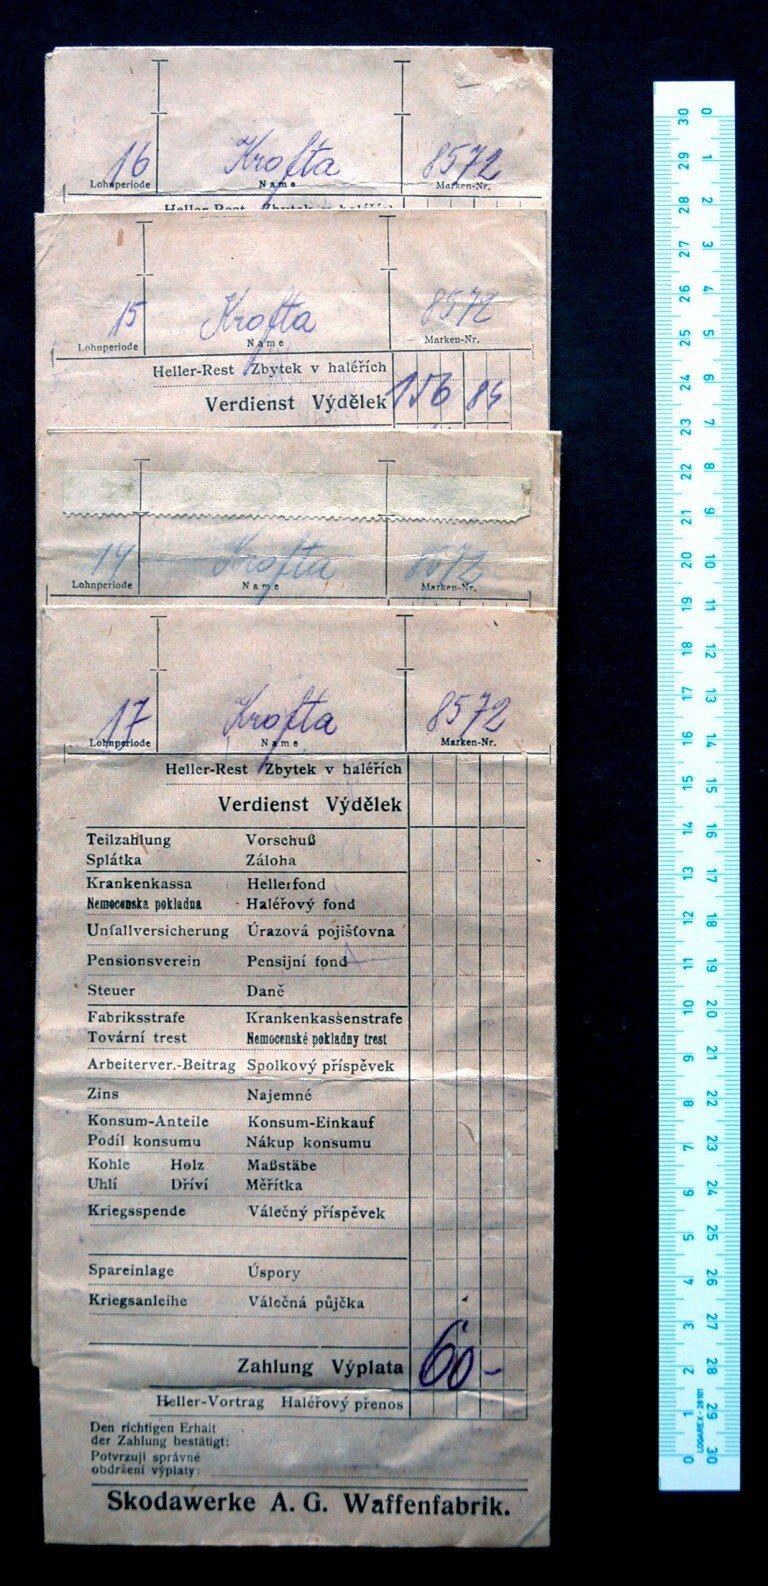 16 Krofta 8572
Lohnperiode Name Marken-Nr.
Heller-Rest Zbytek v haléřích
15 Krofta 8572
Lohnperiode Name Marken-Nr.
Heller-Rest Zbytek v haléřích
Verdienst Výdělek 156 84
14 Krofta 8572
Lohnperiode Name Marken-Nr.
17 Krofta 8572
Lohnperiode Name Marken-Nr.
Heller-Rest Zbytek v haléřích
Verdienst Výdělek
Teilzahlung Vorschuß
Splátka Záloha
Krankenkassa Hellerfond
Nemocenska pokladna Haléřový fond
Unfallversicherung Úrazová pojišťovna
Pensionsverein Pensijní fond
Steuer Daně
Fabriksstrafe Krankenkassenstrafe
Tovární trest Nemocenské pokladny trest
Arbeiterver.-Beitrag Spolkový příspěvek
Zins Najemné
Konsum-Anteile Konsum-Einkauf
Podíl konsumu Nákup konsumu
Kohle Holz Maßstäbe
Uhlí Dříví Měřítka
Kriegsspende Válečný příspěvek
Spareinlage Úspory
Kriegsanleihe Válečná půjčka
Zahlung Výplata 60 -
Heller-Vortrag Haléřový přenos
Den richtigen Erhalt
der Zahlung bestätigt:
Potvrzuji správné
obdržení výplaty:
Skodawerke A. G. Waffenfabrik.
30 0
29 1
28 2
27 3
26 4
25 5
24 6
23 7
22 8
21 9
20 10
19 11
18 12
17 13
16 14
15 15
14 16
13 17
12 18
11 19
10 20
9 21
8 22
7 23
6 24
5 25
4 26
3 27
2 28
1 29
0 30